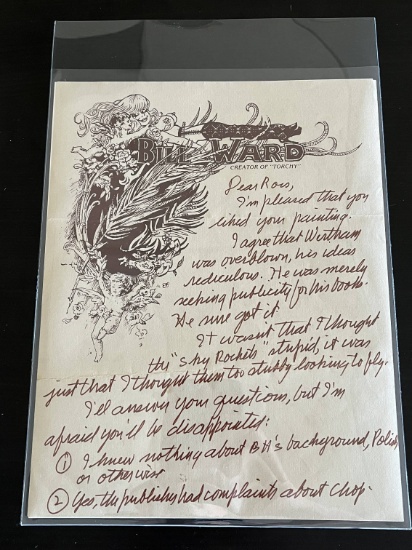 BILL WARD
CREATOR OF "TORCHY"
Dear Ross,
I'm pleased that you
liked your painting.
I agree that Wertham
was overblown, his ideas
rediculous. He was merely
seeking publicity for his books.
He sure got it
It wasn't that I thought
the "Sky Rockets" stupid, it was
just that I thought them too stubby looking to fly.
I'll answer your questions, but I'm
afraid you'll be disappointed:
① I knew nothing about BH's background, Polish
or otherwise
② Yes, the publisher had complaints about Chop-